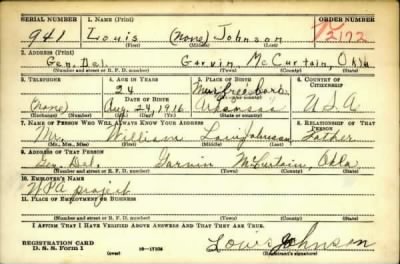 SERIAL NUMBER 1. NAME (Print) ORDER NUMBER
941 Louis (None) Johnson 2172
(First) (Middle) (Last)
2. ADDRESS (Print)
Gen. Del. Garvin, McCurtain, Okla
(Number and street or R. F. D. number) (Town) (County) (State)
3. TELEPHONE 4. AGE IN YEARS 5. PLACE OF BIRTH 6. COUNTRY OF CITIZENSHIP
24 Murfreesboro
(None) DATE OF BIRTH (Town or county)
Aug 24, 1916 Arkansas U.S.A
(Exchange) (Number) (Mo.) (Day) (Yr.) (State or country)
7. NAME OF PERSON WHO WILL ALWAYS KNOW YOUR ADDRESS 8. RELATIONSHIP OF THAT PERSON
Mr. William Johnson Father
(Mr., Mrs., Miss) (First) (Middle) (Last)
9. ADDRESS OF THAT PERSON
Gen. Del. Garvin McCurtain, Okla.
(Number and street or R. F. D. number) (Town) (County) (State)
10. EMPLOYER'S NAME
WPA project
11. PLACE OF EMPLOYMENT OR BUSINESS
(Number and street or R. F. D. number) (Town) (County) (State)
I AFFIRM THAT I HAVE VERIFIED ABOVE ANSWERS AND THAT THEY ARE TRUE.
REGISTRATION CARD Louis Johnson
D. S. S. Form 1 (over) (Registrant's signature)